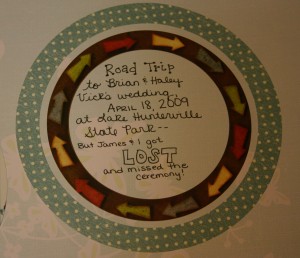 Road Trip
to Brian & Haley
Vick's wedding...
APRIL 18, 2009
at Lake Huntersville
State Park--
But James & I got
LOST
and missed the
ceremony!